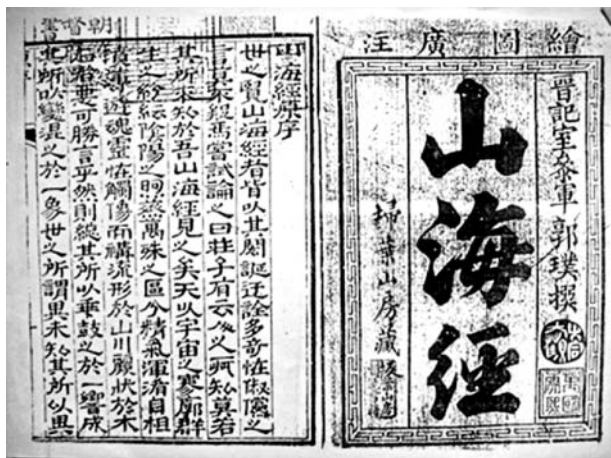 繪圖廣注
晋記室參軍郭璞撰
山海經
掃葉山房藏
山海經原序
世之覽山海經者皆以其閎誕迂誇多奇怪俶儻之
言莫不疑焉嘗試論之曰莊子有云人之所知莫若
其所不知於吾山海經見之矣夫以宇宙之寥廓群
生之紛紜陰陽之煦蒸萬殊之區分精氣渾淆自相
濆薄遊魂靈怪觸像而構流形於山川麗狀於木
石者惡可勝言乎然則總其所以乖鼓之於一響成
其所以變混之於一象世之所謂異未知其所以異